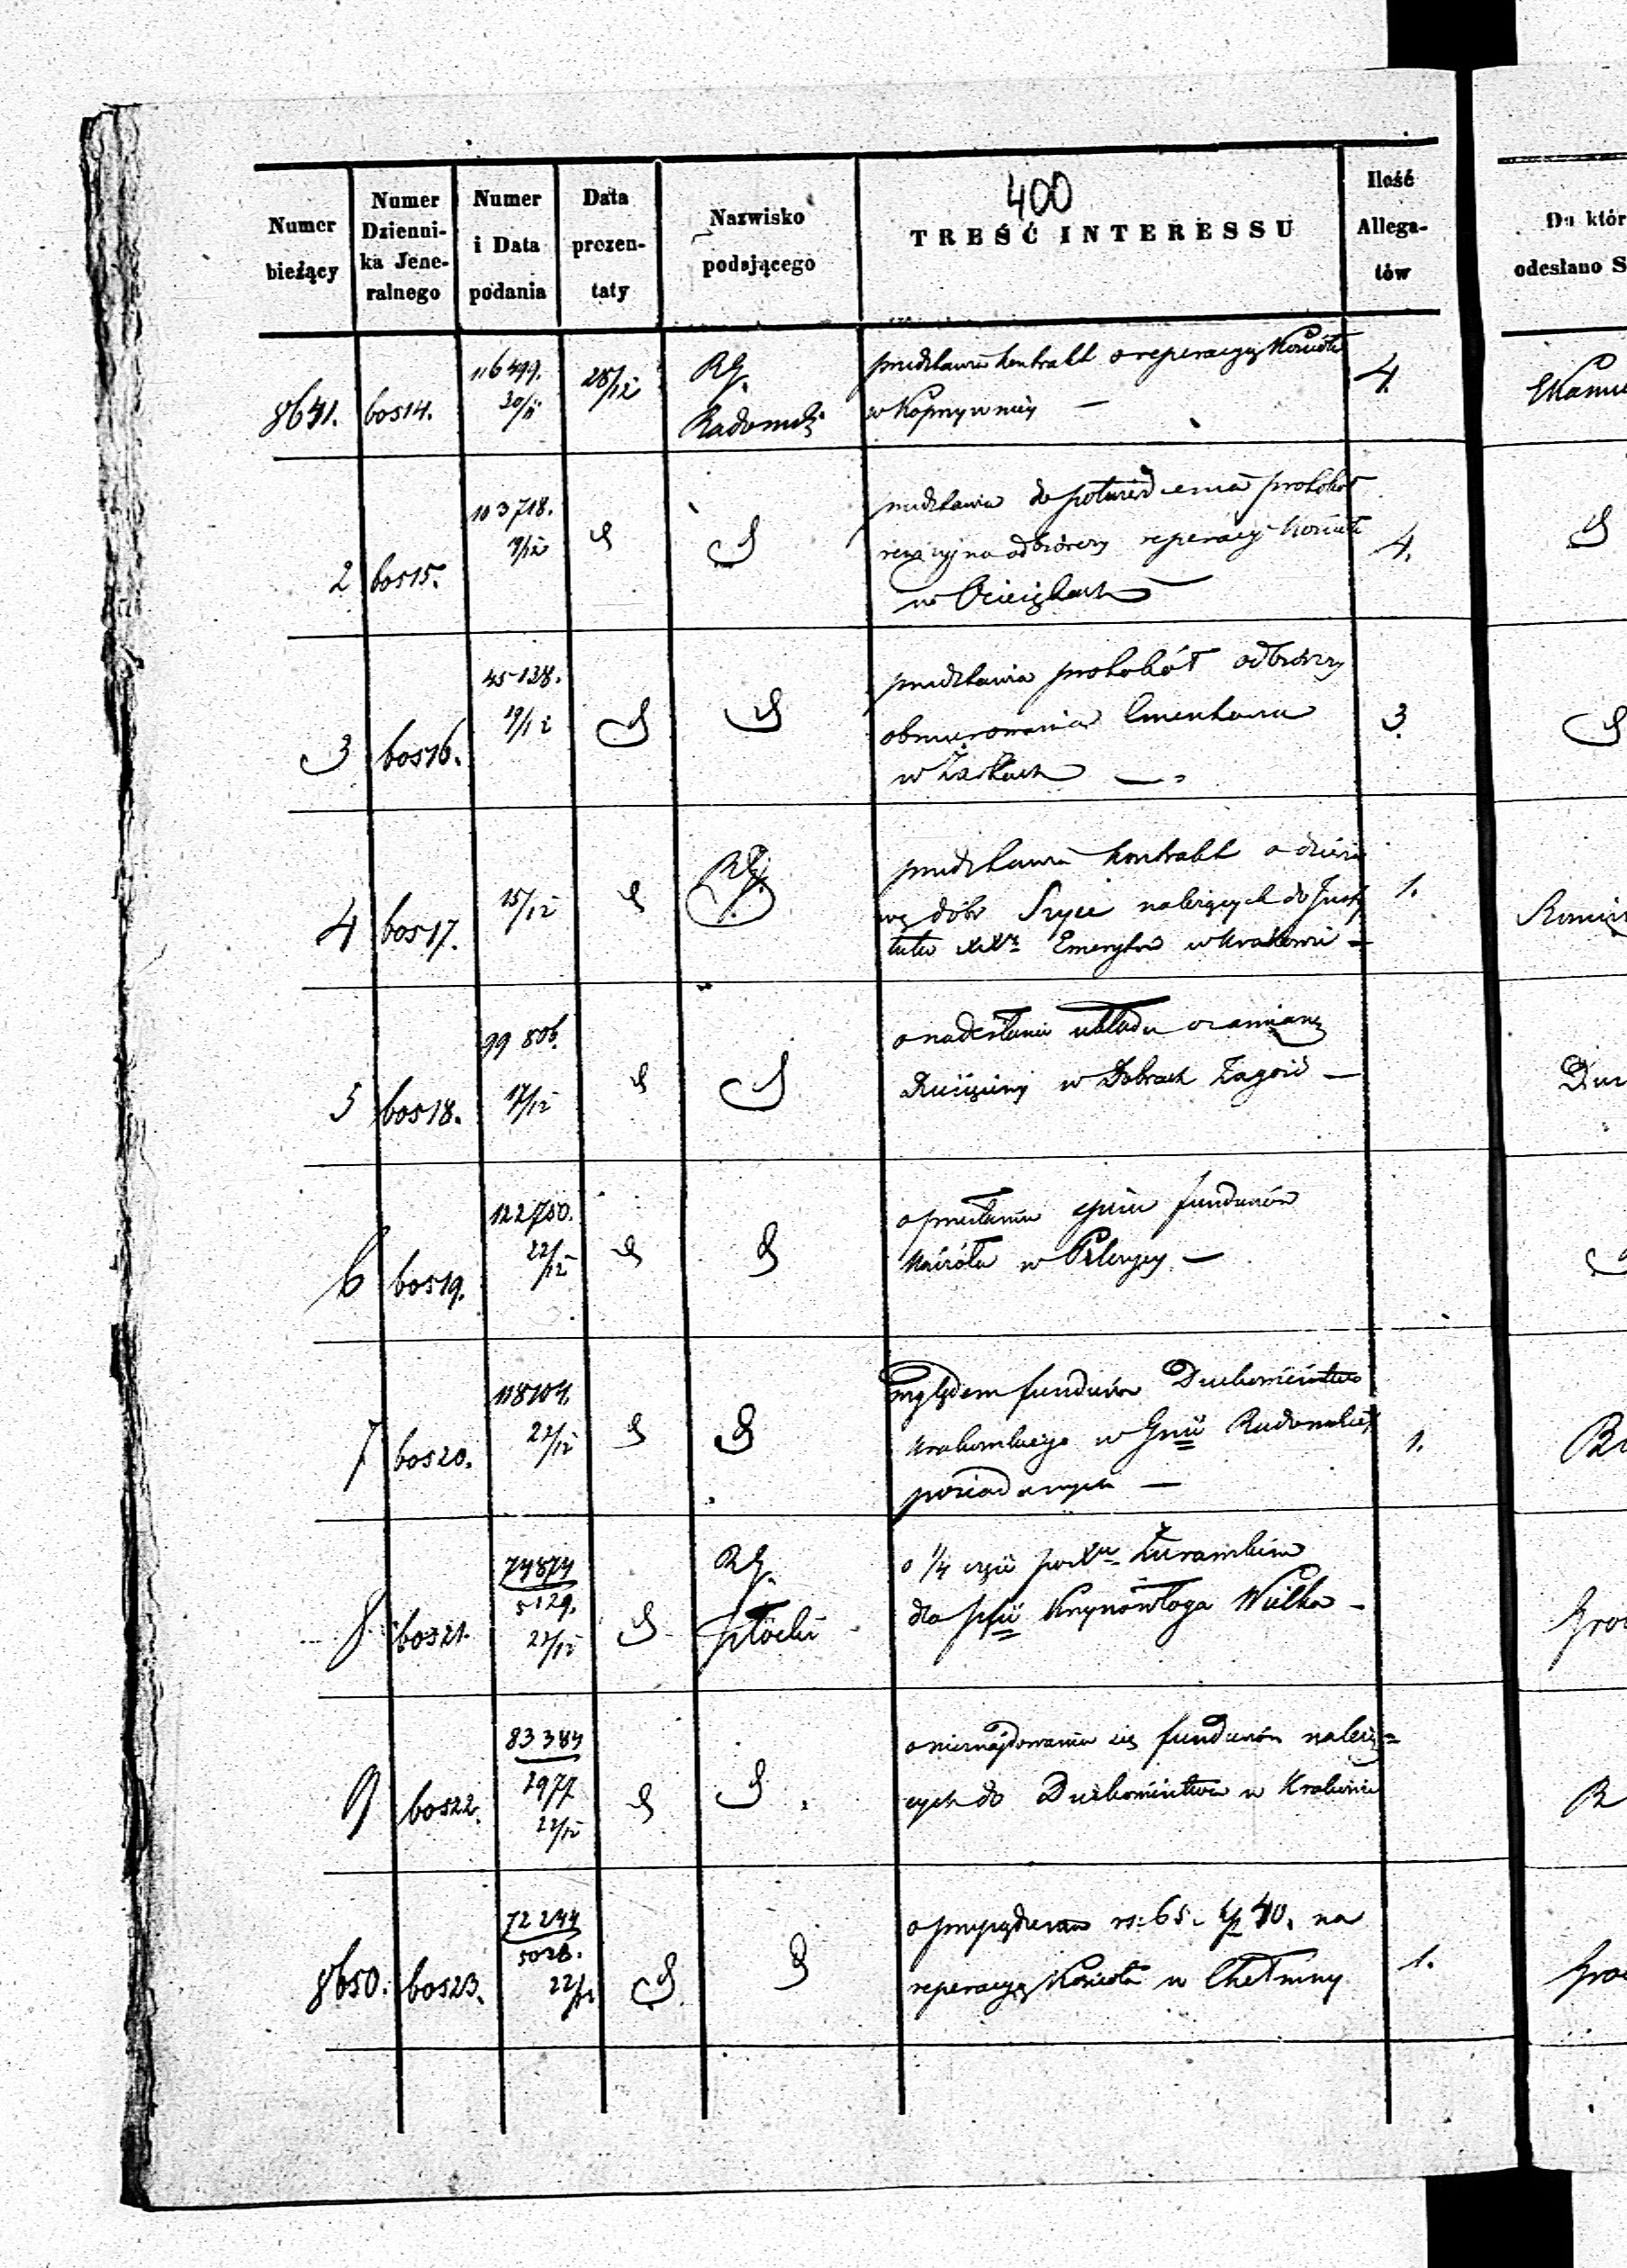 400
Numer bieżący
Numer Dzienni-ka Jene-ralnego
Numer i Data podania
Data prezen-taty
Nazwisko podającego
TREŚĆ INTERESSU
Ilość Allega-tów
Do któr
odesłano S
8641. 60514. 116499. 20/11 28/12 RG. Radomski
przedstawia kontrakt o reperacyę Kościoła
w Koprzywnicy —
4.
2 60515. 103718. 19/12
przedstawia do potwierdzenia protokół
rewizyjno odbiorczy reperacyi Kościoła
w
4.
3 60516. 45128. 19/12
przedstawia protokół odbiorczy
obmurowania Cmentarza
w Żarkach —
3.
4 60517. 15/12 RG.
przedstawia kontrakt o dzierża
wę dóbr Szyce należących do Insty
tutu XX Emerytów w Krakowie —
1.
5 60518. 99806. 17/12
o nadesłanie układu o zamianę
Dziesięciny w Dobrach Zagość —
6 60519. 122750. 22/12
o przesłanie funduszów
Kościoła w —
7 60520. 118104. 22/12
względem funduszów Duchowieństwa
Krakowskiego w Gnii Radomskiej
posiadanych —
1.
8 60521. 74874 5129. 22/12 RG. Płocki
o 1/4 po X Żurawskim
dla Krzynowłoga Wielka —
9 60522. 83384 2977 22/12
o nieznajdowaniu się funduszów należą=
cych do Duchowieństwa w Krakowie
8650. 60523. 72244 5028. 22/12
o rs. 65. k 40. na
reperacyę Kościoła w Chełmny
1.